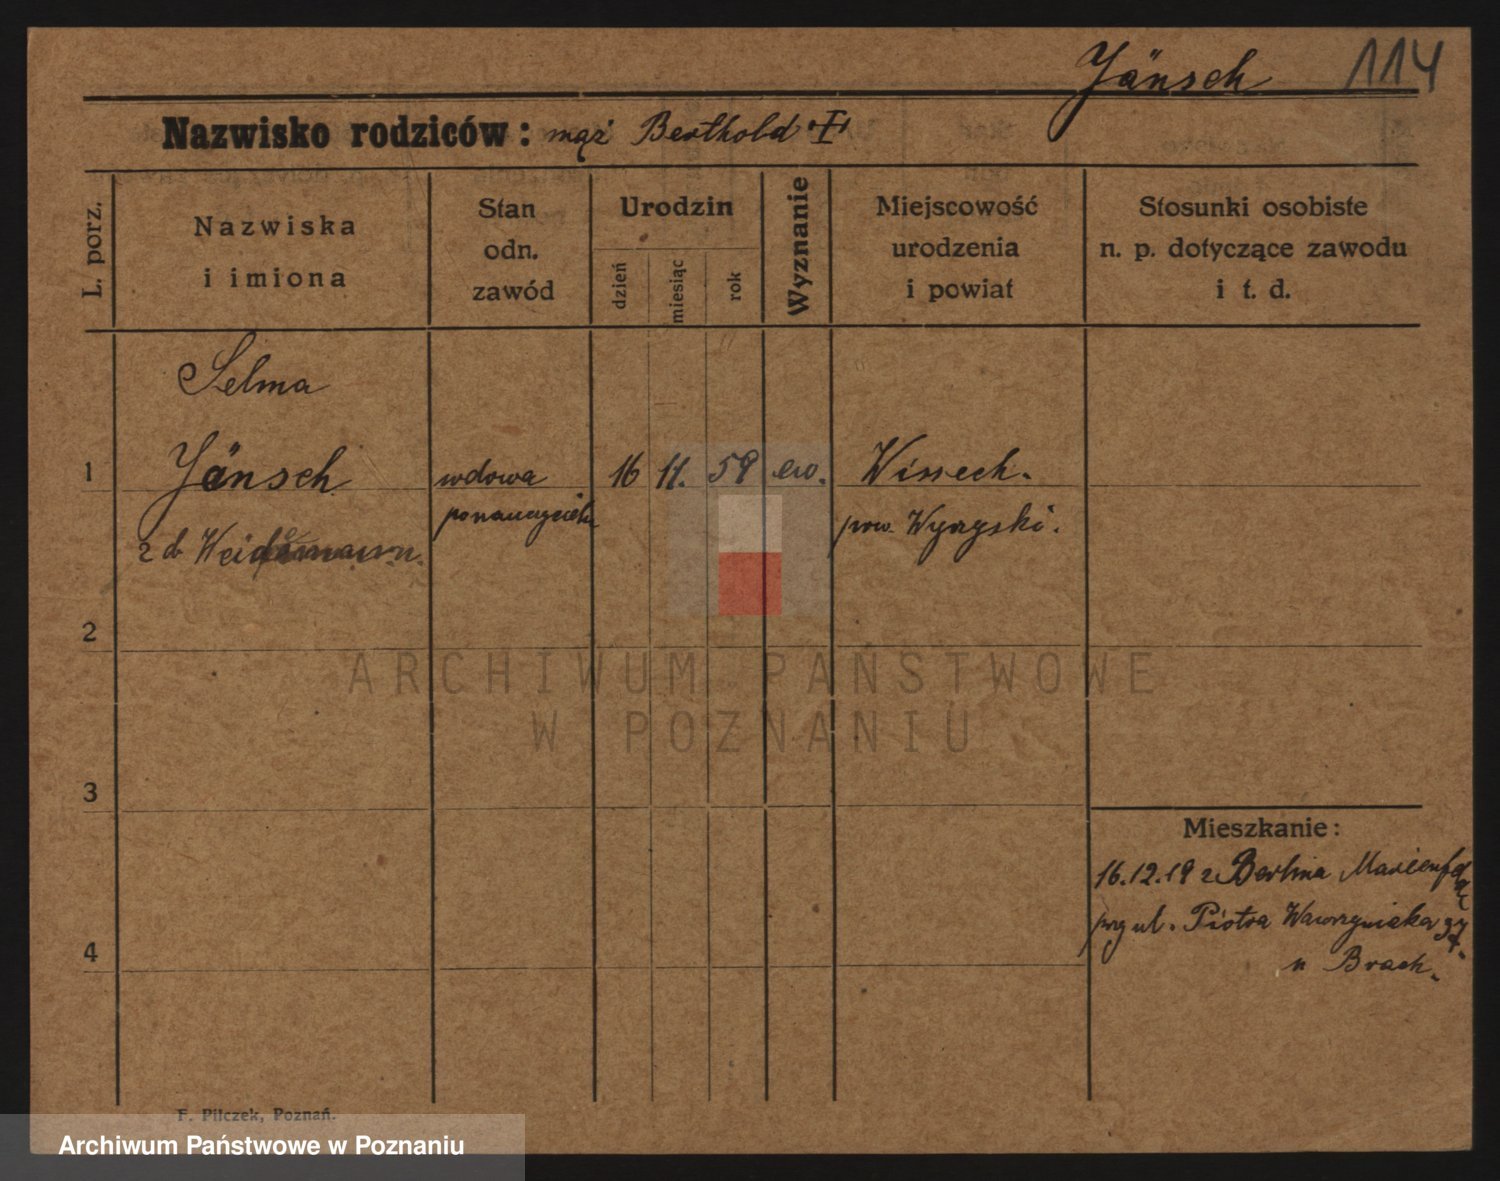 Jänsch 114
Nazwisko rodziców: mąż Berthold
L. porz.
Nazwiska
i imiona
Stan
odn.
zawód
Urodzin
dzień
miesiąc
rok
Wyznanie
Miejscowość
urodzenia
i powiat
Stosunki osobiste
n. p. dotyczące zawodu
i t. d.
Selma
1 Jänsch wdowa 16 11. 59 ew. Wissech.
po nauczycielu pow. Wyrzyski.
z d.
2
ARCHIWUM PAŃSTWOWE
W POZNANIU
3
Mieszkanie:
16.12.19 z Berlina
przy ul. Piotra Wawrzyniaka
4
u Brach.
F. Pilczek, Poznań.
Archiwum Państwowe w Poznaniu